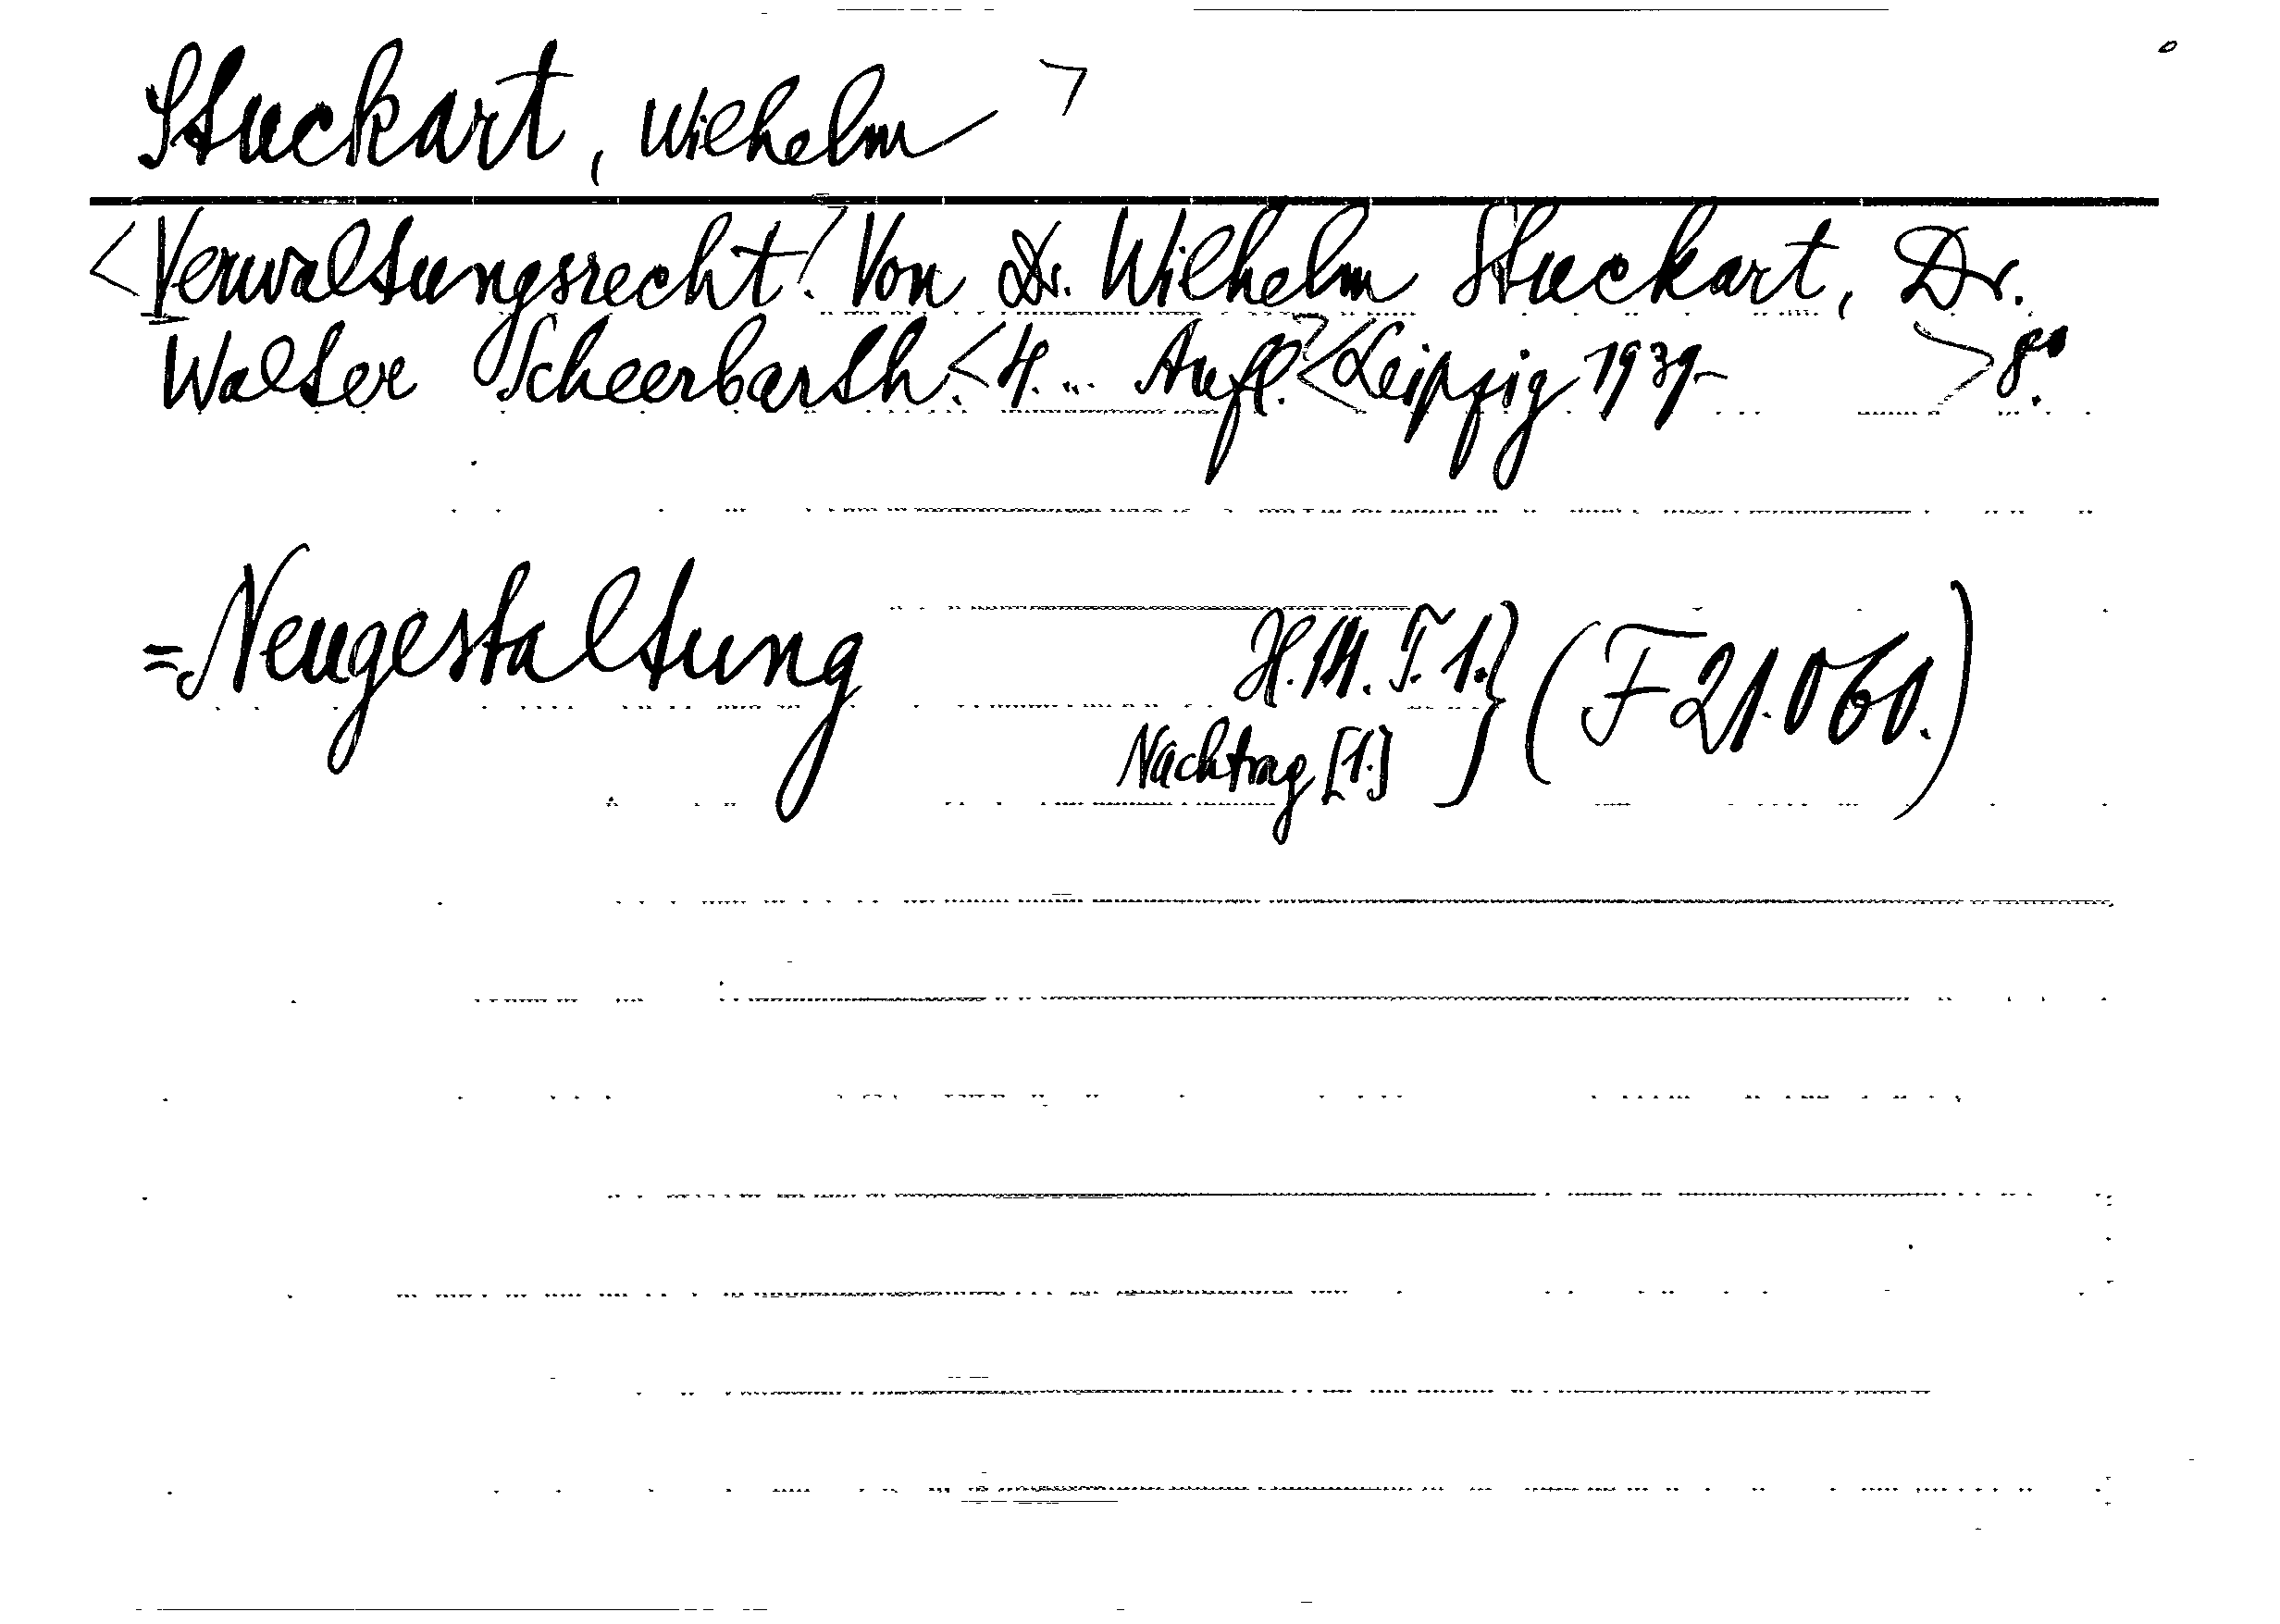 Stuckart, Wilhelm >
<Verwaltungsrecht. Von Dr. Wilhelm Stuckart, Dr.
Walter Scheerbarth. <4. ... Aufl.> <Leipzig 1939- >8°.
=Neugestaltung H.14. T.1.} (F 21.060.)
Nachtrag [1.]